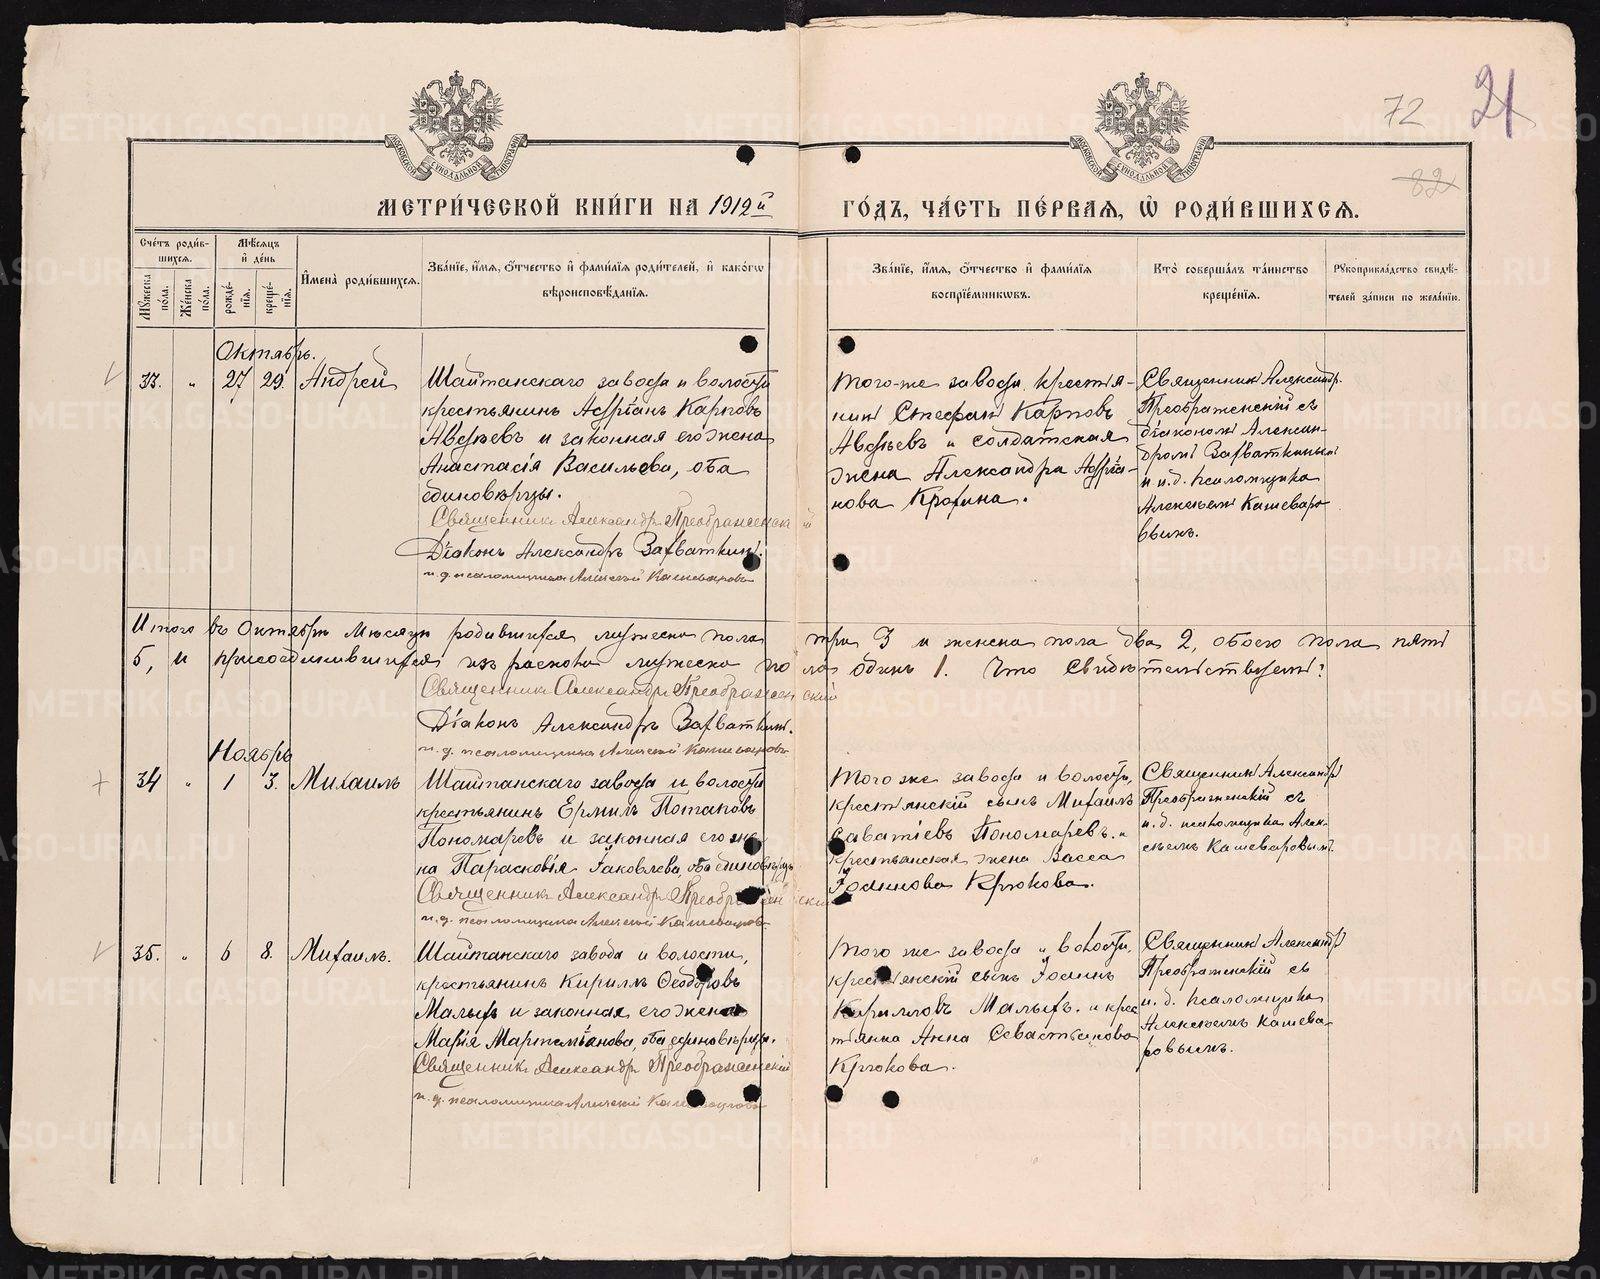 72
21
82
МОСКОВСКОЙ СѴНОДАЛЬНОЙ ТИПОГРАФІИ
МОСКОВСКОЙ СѴНОДАЛЬНОЙ ТИПОГРАФІИ
МЕТРИ́ЧЕСКОЙ КНИ́ГИ НА 1912й
ГО́ДЪ, ЧА́СТЬ ПЕ́РВАЯ, Ѽ РОДИ́ВШИХСЯ.
Сче́тъ роди́в-
шихся.
Мꙋ́жеска по́ла.
Же́нска по́ла.
Мѣ́сяцъ
и҆ де́нь
рожде́-
нїя.
креще́-
нїя.
И҆мена̀ роди́вшихся.
Зва́нїе, и҆́мя, ѻ҆́тчество и҆ фами́лїя роди́телей, и҆ како́гѡ
вѣроисповѣ́данїя.
Зва́нїе, и҆́мя, ѻ҆́тчество и҆ фами́лїя
воспрїе́мникѡвъ.
Кто̀ соверша́лъ та́инство
креще́нїя.
Рꙋкоприкла́дство свидѣ́-
телей за́писи по жела́нїю.
Октябрь.
33. " 27 29. Андрей
Шайтанскаго завода и волости
крестьянинъ Адріанъ Карповъ
Авдѣевъ и законная его жена
Анастасія Васильева, оба
единовѣрцы.
Священникъ Александръ Преображенскій
Діаконъ Александръ Захваткинъ.
и. д. псаломщика Алексѣй Кашеваровъ
Того-же завода крестья-
нинъ Стефанъ Карповъ
Авдѣевъ и солдатская
жена Александра Адріа-
нова Крохина.
Священникъ Александръ
Преображенскій съ
діакономъ Алексан-
дромъ Захваткинымъ
и и. д. псаломщика
Алексѣемъ Кашеваро-
вымъ.
Итого въ Октябрѣ мѣсяцѣ родившихся мужеска пола три 3 и женска пола два 2, обоего пола пять
5, и присоединившихся изъ раскола мужеска пола одинъ 1. Что свидѣтельствуемъ:
Священникъ Александръ Преображенскій
Діаконъ Александръ Захваткинъ.
и. д. псаломщика Алексѣй Кашеваровъ
Ноябрь
34 " 1 3. Михаилъ
Шайтанскаго завода и волости
крестьянинъ Ермилъ Потаповъ
Пономаревъ и законная его же-
на Парасковія Іаковлева, оба единовѣрцы
Священникъ Александръ Преображенскій
и. д. псаломщика Алексѣй Кашеваровъ
Того же завода и волости,
крестьянскій сынъ Михаилъ
Савватіевъ Пономаревъ. и
крестьянская жена Васса
Іоаннова Крюкова.
Священникъ Александръ
Преображенскій съ
и. д. псаломщика Алек-
сѣемъ Кашеваровымъ.
35. " 6 8. Михаилъ.
Шайтанскаго завода и волости,
крестьянинъ Кириллъ Ѳеодоровъ
Малыхъ и законная его жена
Марія Мартеміанова, оба единовѣрцы.
Священникъ Александръ Преображенскій
и. д. псаломщика Алексѣй Кашеваровъ
Того же завода и волости,
крестьянскій сынъ Іоаннъ
Кирилловъ Малыхъ. и крес
тьянка Анна Севастьянова
Крюкова.
Священникъ Александръ
Преображенскій съ
и. д. псаломщика
Алексѣемъ Кашева-
ровымъ.
METRIKI.GASO-URAL.RU